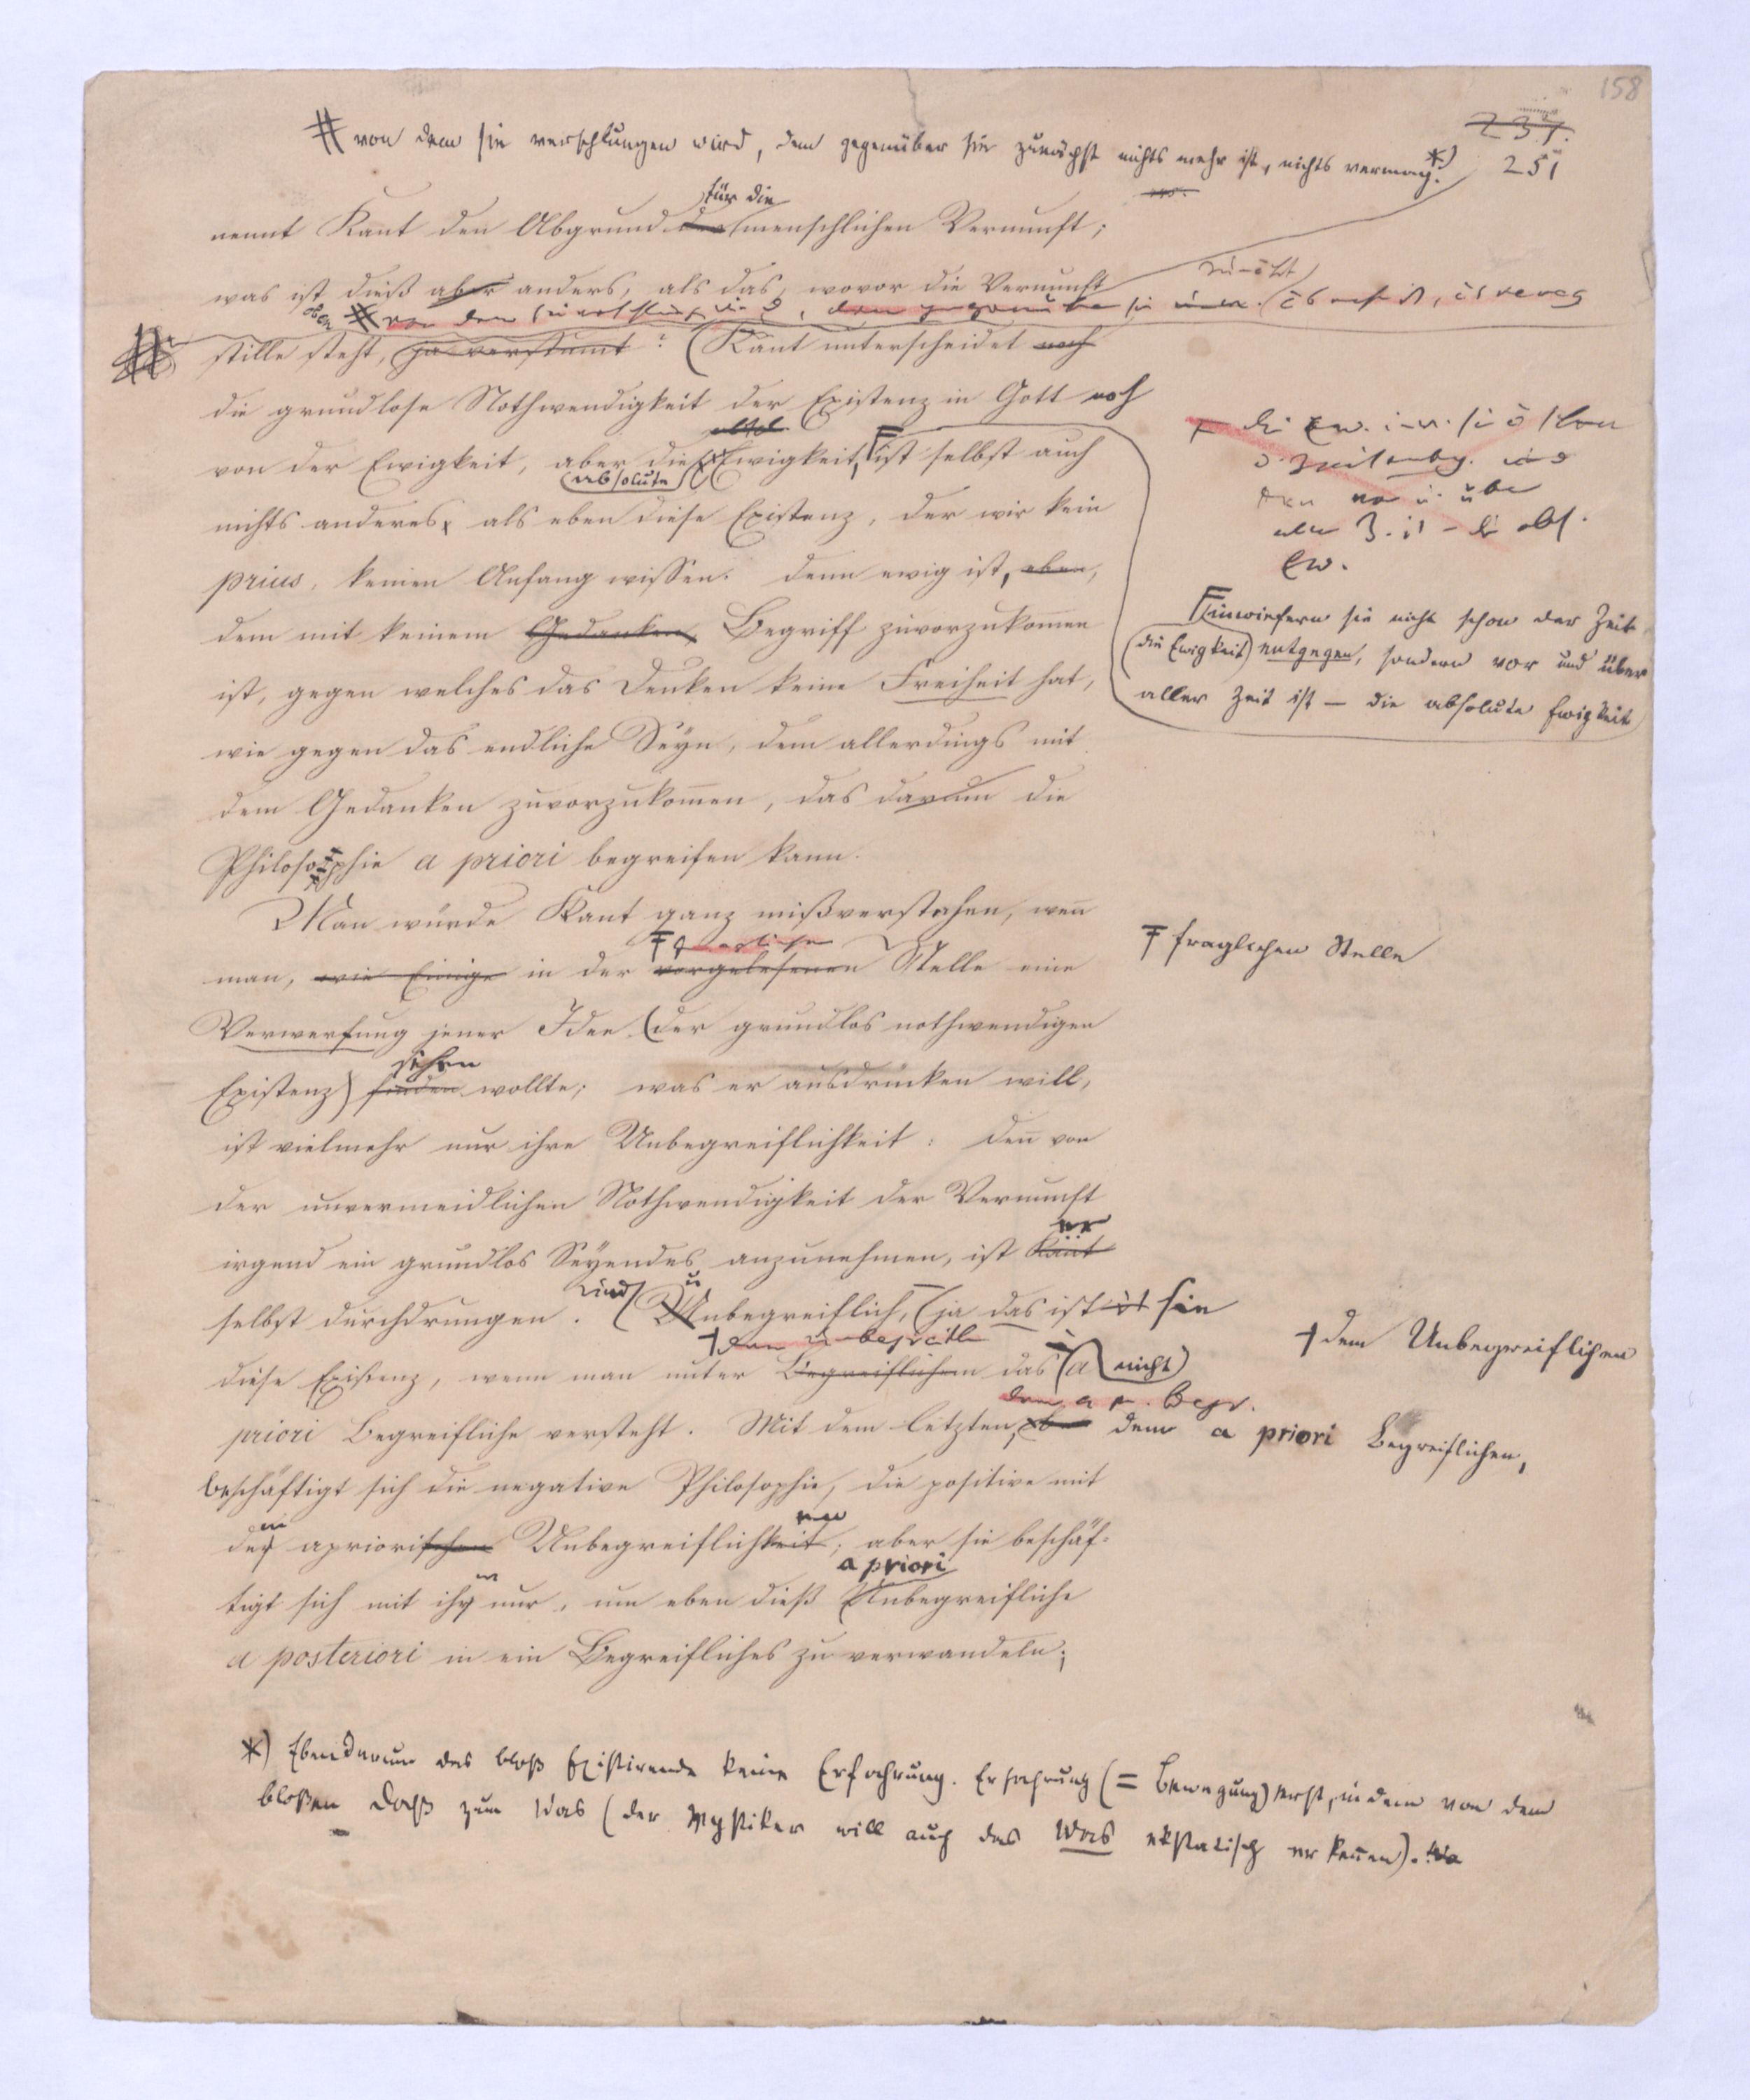 158
# von dem sie verschlungen wird, dem gegenüber sie zunächst nichts mehr ist, nichts vermag. *)
237.
251
für die
nennt Kant den Abgrund der menschlichen Vernunft;
was ist dieß aber anders, als das, wovor die Vernunft
oben # von dem sie verschlungen wird, dem gegenüber sie
stille steht, ja verstumt: (Kant unterscheidet noch
die grundlose Nothwendigkeit der Existenz in Gott noch
von der Ewigkeit, aber die Ewigkeit, F ist selbst auch
absolute
nichts anderes, als eben diese Existenz, der wir kein
prius, keinen Anfang wissen. denn ewig ist, eben,
dem mit keinem Gedanken Begriff zuvorzukom̄en
ist, gegen welches das Denken keine Freiheit hat,
wie gegen das endliche Seyn, dem allerdings mit
dem Gedanken zuvorzukom̄en, das darum die
Philosophie a priori begreifen kann.
Ew.
F inwiefern sie nicht schon der Zeit
(die Ewigkeit) entgegen, sondern vor und über
aller Zeit ist — die absolute Ewigkeit
Man würde Kant ganz mißverstehen, wen̄
man, wie Einige in der vorgelesenen Stelle eine
Ŧ fraglichen Stelle
Verwerfung jener Idee (der grundlos nothwendigen
sehen
Existenz) finden wollte; was er ausdrücken will,
ist vielmehr nur ihre Unbegreiflichkeit: den̄ von
der unvermeidlichen Nothwendigkeit der Vernunft
er
irgend ein grundlos Seyendes anzunehmen, ist Kant
selbst durchdrungen. Und (Unbegreiflich, (ja das ist ist sie
† dem Unbegreiflichen
diese Existenz, wenn man unter Begreiflichem das (a nicht)
dem a pr. Begr.
priori Begreifliche versteht. Mit dem letzten, dem a priori Begreiflichen,
beschäftigt sich die negative Philosophie, die positive mit
dem apriorischen Unbegreiflichkeit; aber sie beschäf-
a priori
tigt sich mit ihm nur, um eben dieß Unbegreifliche
a posteriori in ein Begreifliches zu verwandeln;
*) Ebendarum das bloß Existirende keine Erfahrung. Erfahrung (= Bewegung) erst, indem von dem
bloßen Daß zum Was (der Mystiker will auch das Was ekstatisch erken̄en).